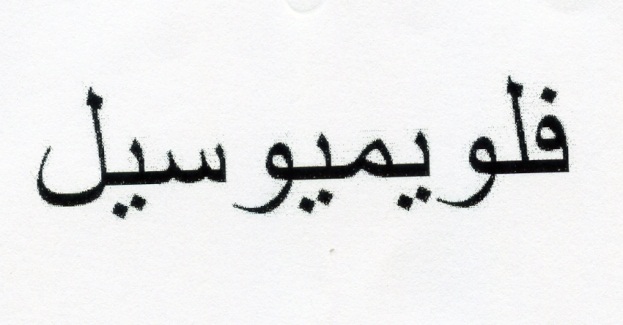 فلويميوسيل